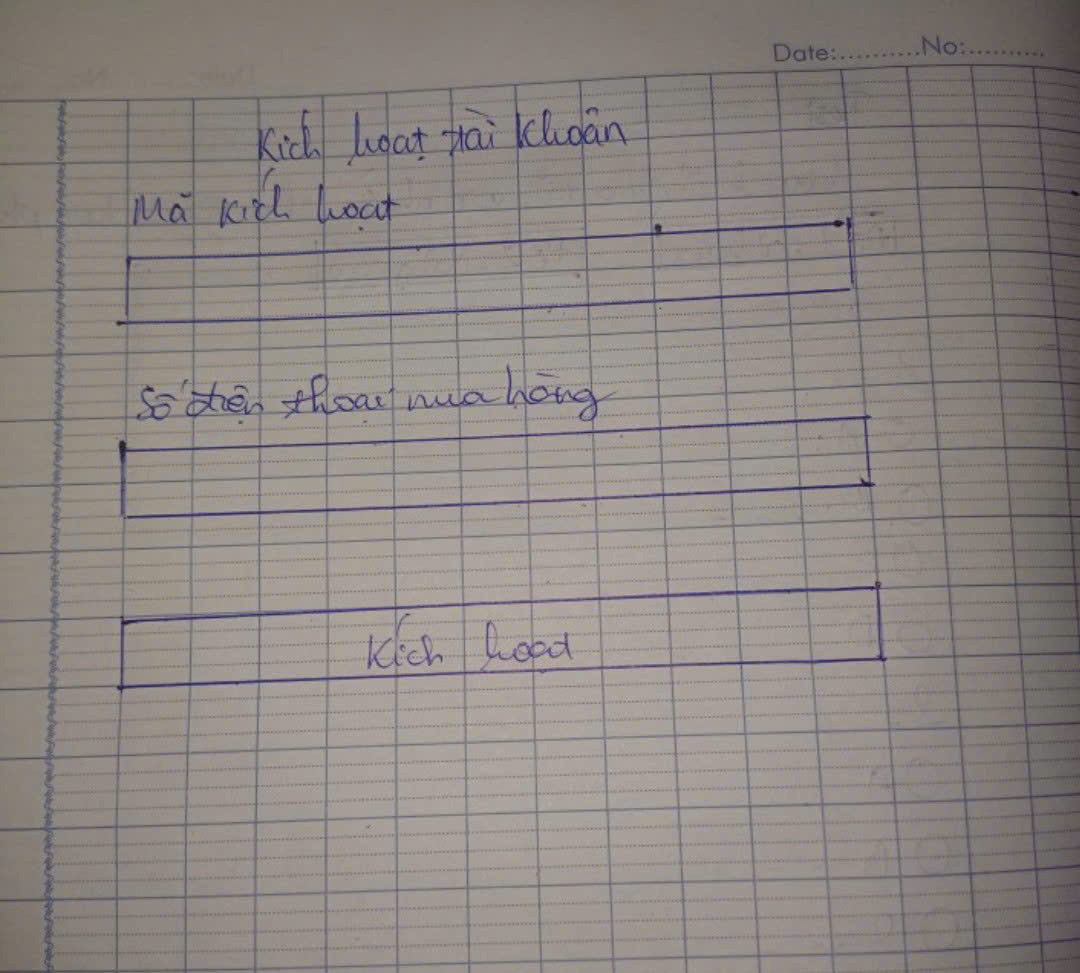 Date:...........No:...........
Kích hoạt tài khoản
Mã kích hoạt
Số điện thoại mua hàng
Kích hoạt